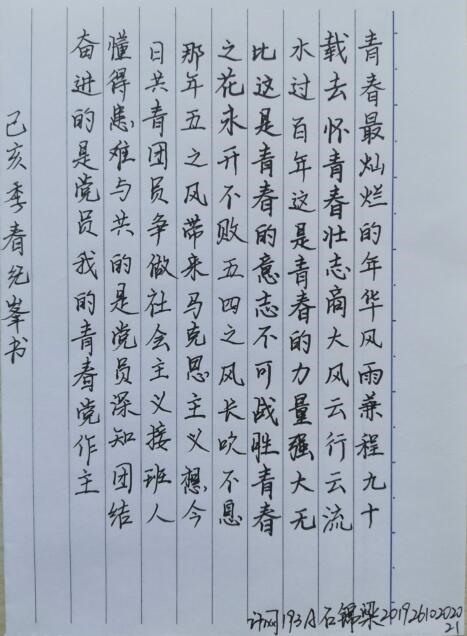 青春最灿烂的年华风雨兼程九十
载去怀青春壮志商大风云行云流
水过百年这是青春的力量强大无
比这是青春的意志不可战胜青春
之花永开不败五四之风长吹不息
那年五之风带来马克思主义想今
日共青团员争做社会主义接班人
懂得患难与共的是党员深知团结
奋进的是党员我的青春党作主
己亥季春纪峯书
193A石锦梁201926102020
21